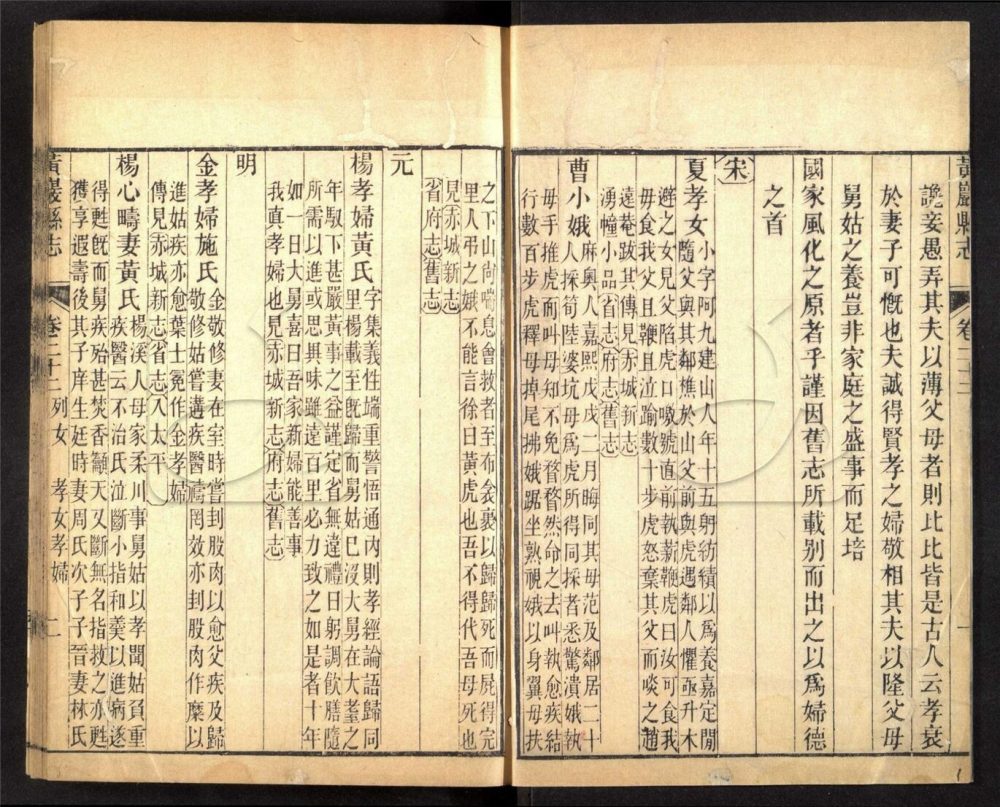 黃巖縣志 卷二十二 一
讒妾愚弄其夫以薄父母者則比比皆是古人云孝衰
於妻子可慨也夫誠得賢孝之婦敬相其夫以隆父母
舅姑之養豈非家庭之盛事而足培
國家風化之原者乎謹因舊志所載別而出之以爲婦德
之首
宋
夏孝女小字阿九建山人年十五躬紡績以爲養嘉定閒
隨父與其鄰樵於山父前與虎遇鄰人懼亟升木
避之女見父陷虎口嗷號直前執薪鞭虎曰汝可食我
毋食我父且鞭且泣踰數十步虎怒棄其父而啖之趙
遠菴跋其傳見赤城新志
湧幢小品省志府志舊志
曹小娥麻奧人嘉熙戊戌二月晦同其母范及鄰居二十
人採筍陸婆坑母爲虎所得同採者悉驚潰娥執
虎尾手推而叫母知不免瞀瞀然命之去叫執愈疾結
行數百步虎釋母掉尾拂娥踞坐熟視娥以身翼母扶
之下山尙喘息會救者至布衾裹以歸歸死而屍得完
里人弔之娥不能言徐曰黃虎也吾不得代吾母死也
見赤城新志
省府志舊志
元
楊孝婦黃氏字集義性端重警悟通內則孝經論語歸同
里楊載至旣歸而舅姑已沒大舅在大耋之
年馭下甚嚴黃事之益謹定省無違禮日躬調飲膳隨
所需以進或思異味雖遠百里必力致之如是者十年
如一日大舅喜曰吾家新婦能善事
我真孝婦也見赤城新志府志舊志
明
金孝婦施氏金敬修妻在室時嘗刲股肉以愈父疾及歸
敬修姑嘗遘疾醫禱罔效亦刲股肉作糜以
進姑疾亦愈葉士冕作金孝婦
傳見赤城新志省志入太平
楊心疇妻黃氏楊溪人母家柔川事舅姑以孝聞姑負重
疾醫云不治氏泣斷小指和羹以進病遂
得甦旣而舅疾殆甚焚香籲天又斷無名指救之亦甦
獲享遐壽後其子庠生廷時妻周氏次子子晉妻林氏
黃巖縣志 卷二十二 列女 孝女孝婦 二